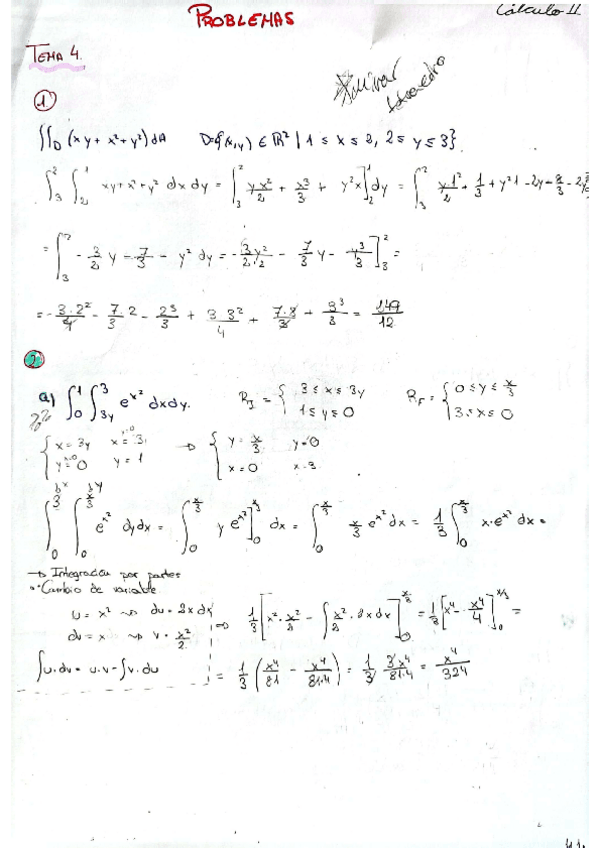 PROBLEMAS
Cálculo II
TEMA 4.
1
∬_D (xy + x² + y²) dA    D={(x,y) ∈ ℝ² | 1 ≤ x ≤ 2, 2 ≤ y ≤ 3}
∫_3^2 ∫_2^1 xy + x² + y² dx dy = ∫_3^2 [yx²/2 + x³/3 + y²x]_2^1 dy = ∫_3^2 y1²/2 + 1/3 + y²1 - 2y - 8/3 - 2y²
= ∫_3^2 -3/2 y - 7/3 - y² dy = -3/2 y²/2 - 7/3 y - y³/3]_3^2 =
= -3·2²/4 - 7/3·2 - 2³/3 + 3·3²/4 + 7·3/3 + 3³/3 = 149/12
2
a) ∫_0^1 ∫_3y^3 e^x² dxdy.    R_I = { 3 ≤ x ≤ 3y    R_F = { 0 ≤ y ≤ x/3
1 ≤ y ≤ 0    3 ≤ x ≤ 0
{ x = 3y    x = 3    → { y = x/3    y = 0
y = 0    y = 1    x = 0    x = 3
∫_0^3 ∫_0^x/3 e^x² dy dx = ∫_0^x/3 y e^x²]_0^x/3 dx = ∫_0^x/3 x/3 e^x² dx = 1/3 ∫_0^x/3 x·e^x² dx =
→ Integración por partes
Cambio de variable
u = x² ⇝ du = 2x dx    ⇒ 1/3 [x²·x²/2 - ∫ x²/2·2x dx]_0^x/3 = 1/3 [x⁴ - x⁴/4]_0^x/3 =
dv = x ⇝ v = x²/2
∫u·dv = u·v - ∫v·du    = 1/3 (x⁴/81 - x⁴/81·4) = 1/3 3x⁴/81·4 = x⁴/324